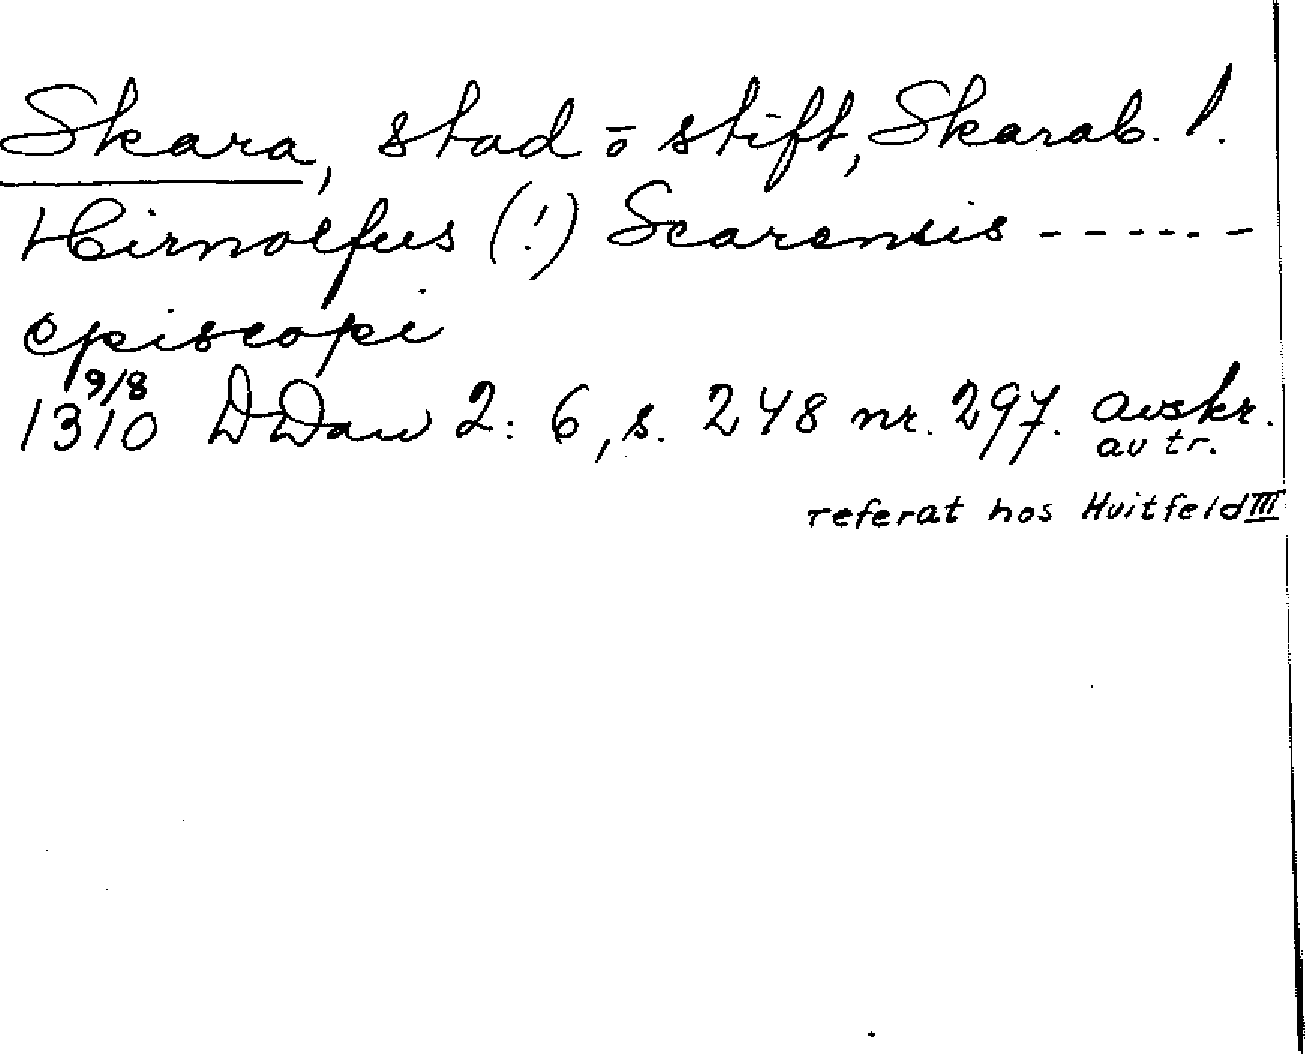 Skara, stad o stift, Skarab. l.
Hirnolfus (!) Scarensis ------
episcopi
1310 9/8 DDan 2:6, s. 248 nr. 297. avskr.
av tr.
referat hos Huitfeld III